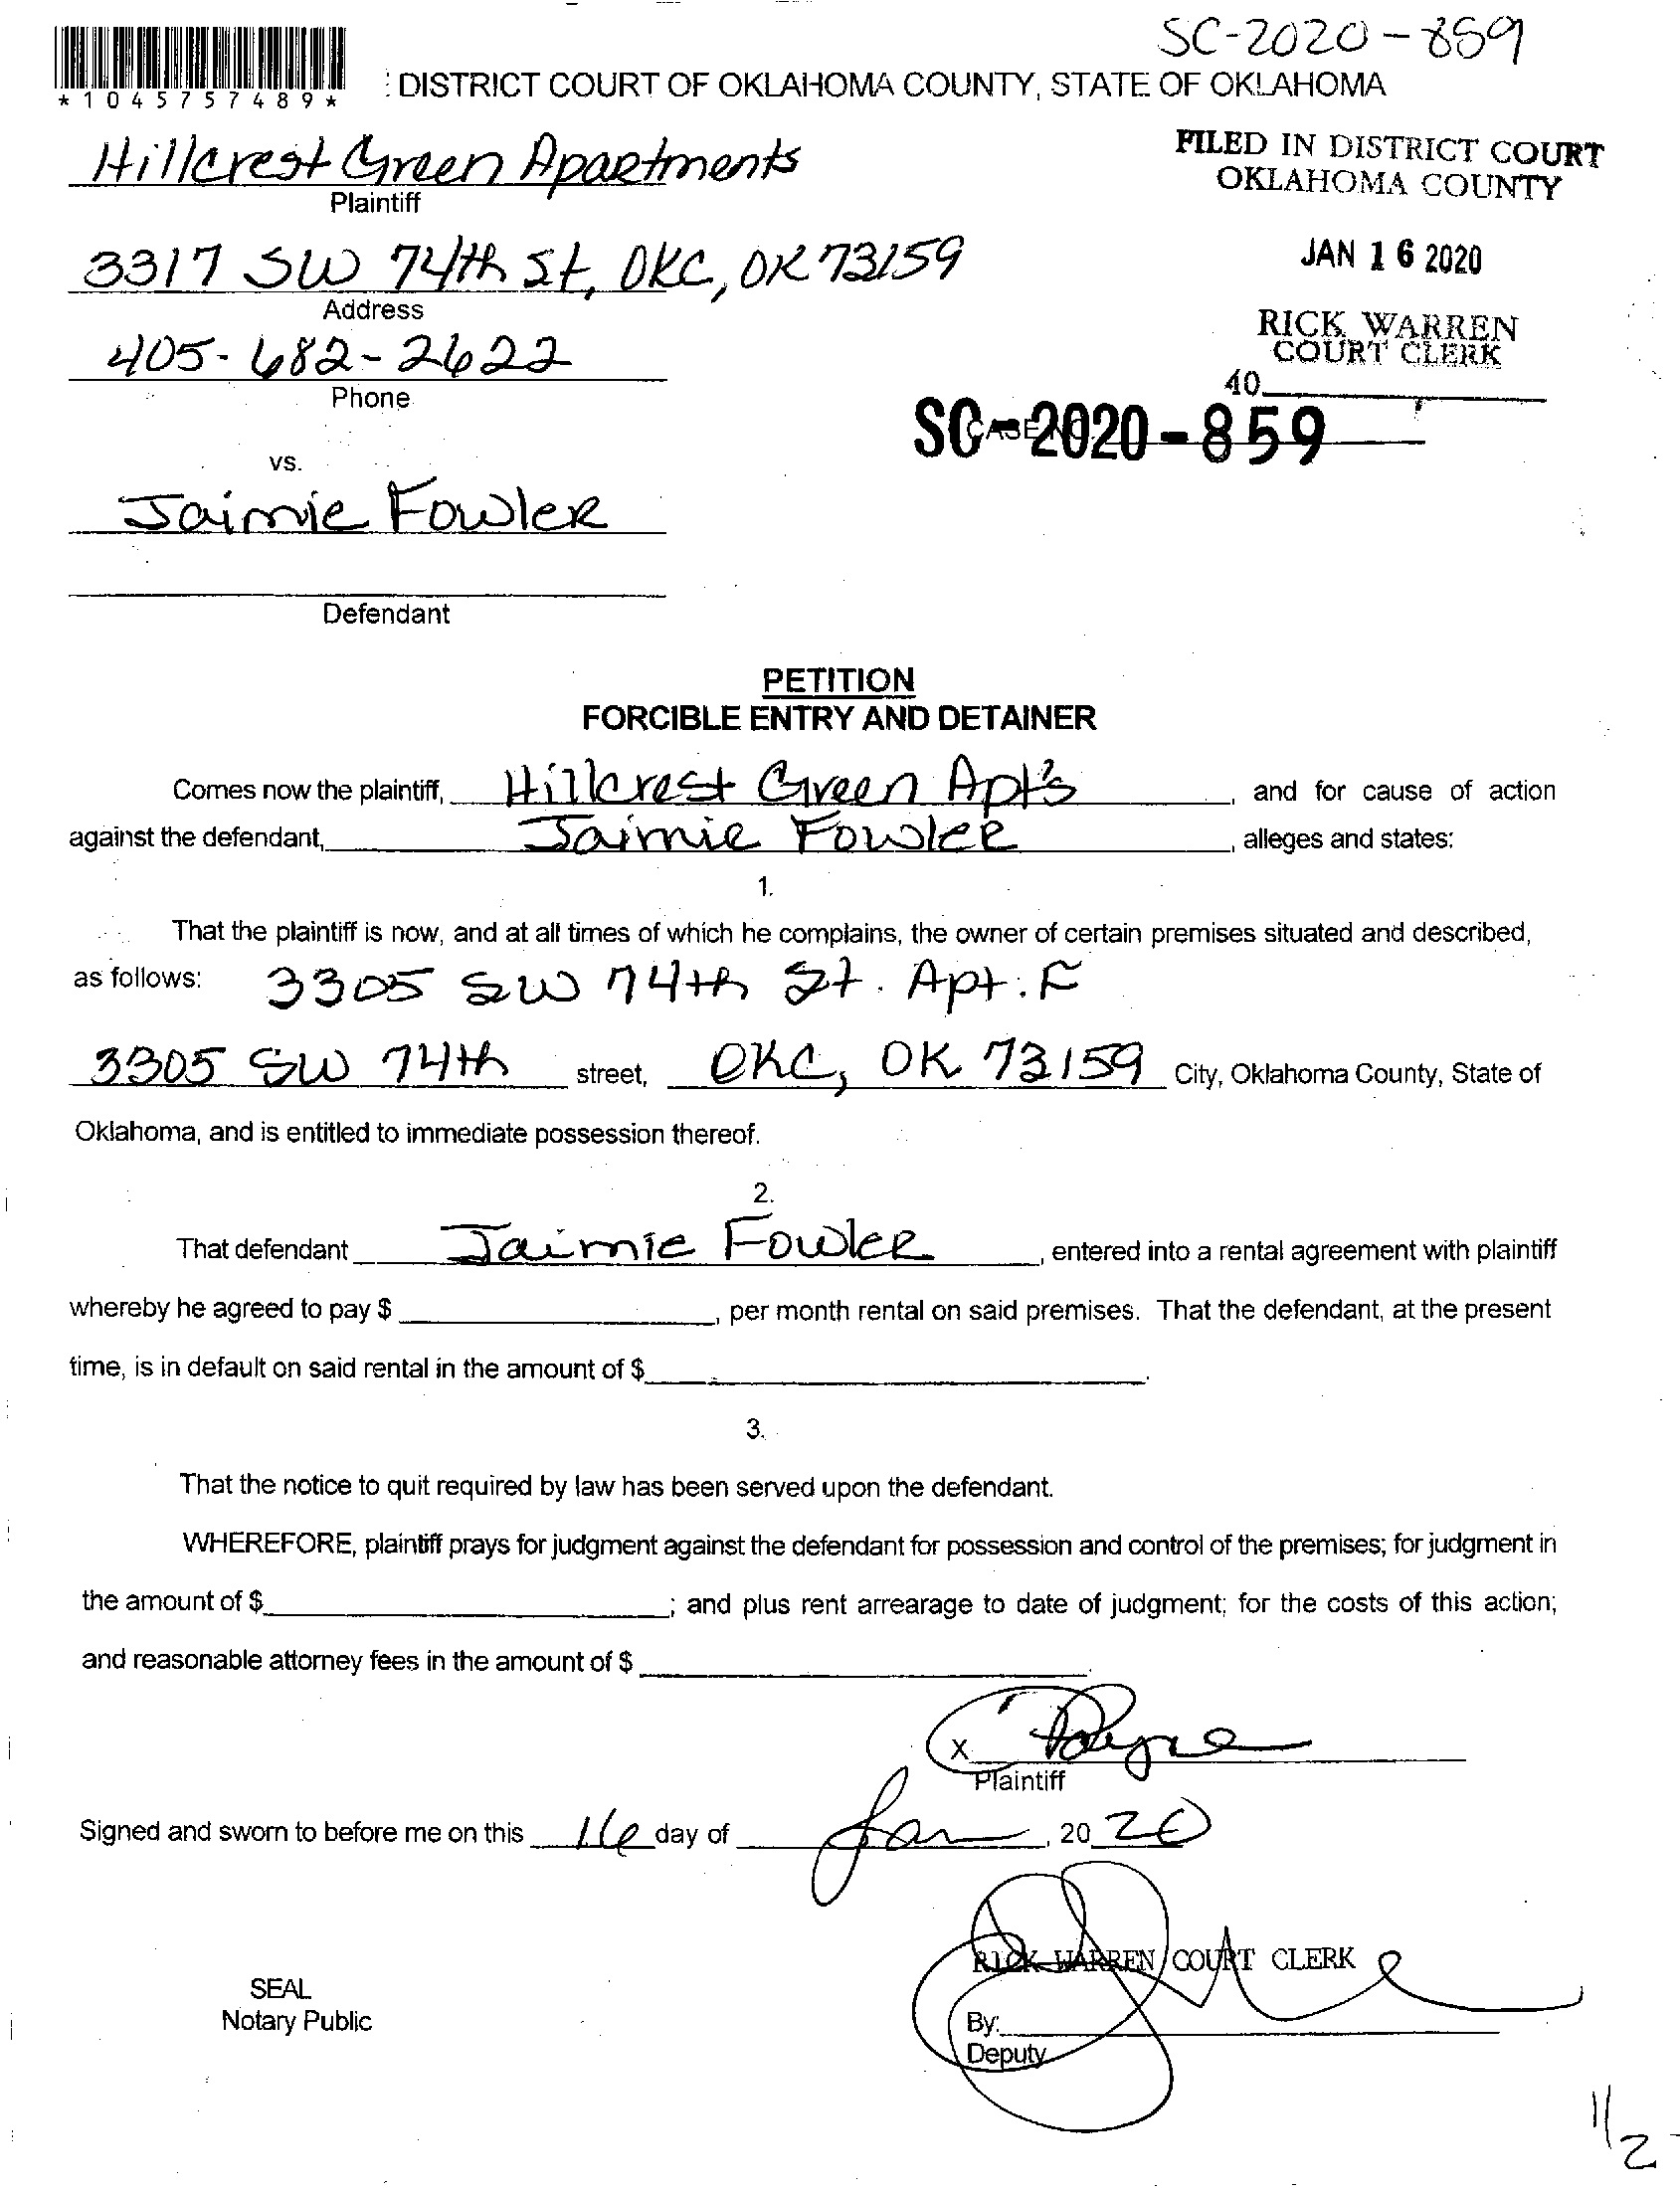 SC-2020-859
*1045757489*
DISTRICT COURT OF OKLAHOMA COUNTY, STATE OF OKLAHOMA
Hillcrest Green Apartments
Plaintiff
FILED IN DISTRICT COURT
OKLAHOMA COUNTY
3317 SW 74th St, OKC, OK 73159
Address
JAN 16 2020
405-682-2622
Phone
RICK WARREN
COURT CLERK
40
CASE NO.
SC-2020-859
vs.
Jaimie Fowler
Defendant
PETITION
FORCIBLE ENTRY AND DETAINER
Comes now the plaintiff, Hillcrest Green Apt's, and for cause of action
against the defendant, Jaimie Fowler, alleges and states:
1.
That the plaintiff is now, and at all times of which he complains, the owner of certain premises situated and described,
as follows: 3305 SW 74th St. Apt. F
3305 SW 74th street, OKC, OK 73159 City, Oklahoma County, State of
Oklahoma, and is entitled to immediate possession thereof.
2.
That defendant Jaimie Fowler, entered into a rental agreement with plaintiff
whereby he agreed to pay $, per month rental on said premises. That the defendant, at the present
time, is in default on said rental in the amount of $.
3.
That the notice to quit required by law has been served upon the defendant.
WHEREFORE, plaintiff prays for judgment against the defendant for possession and control of the premises; for judgment in
the amount of $; and plus rent arrearage to date of judgment; for the costs of this action;
and reasonable attorney fees in the amount of $.
X Payne
Plaintiff
Signed and sworn to before me on this 16 day of Jan, 2020
RICK WARREN COURT CLERK
SEAL
Notary Public
By:
Deputy
1/2